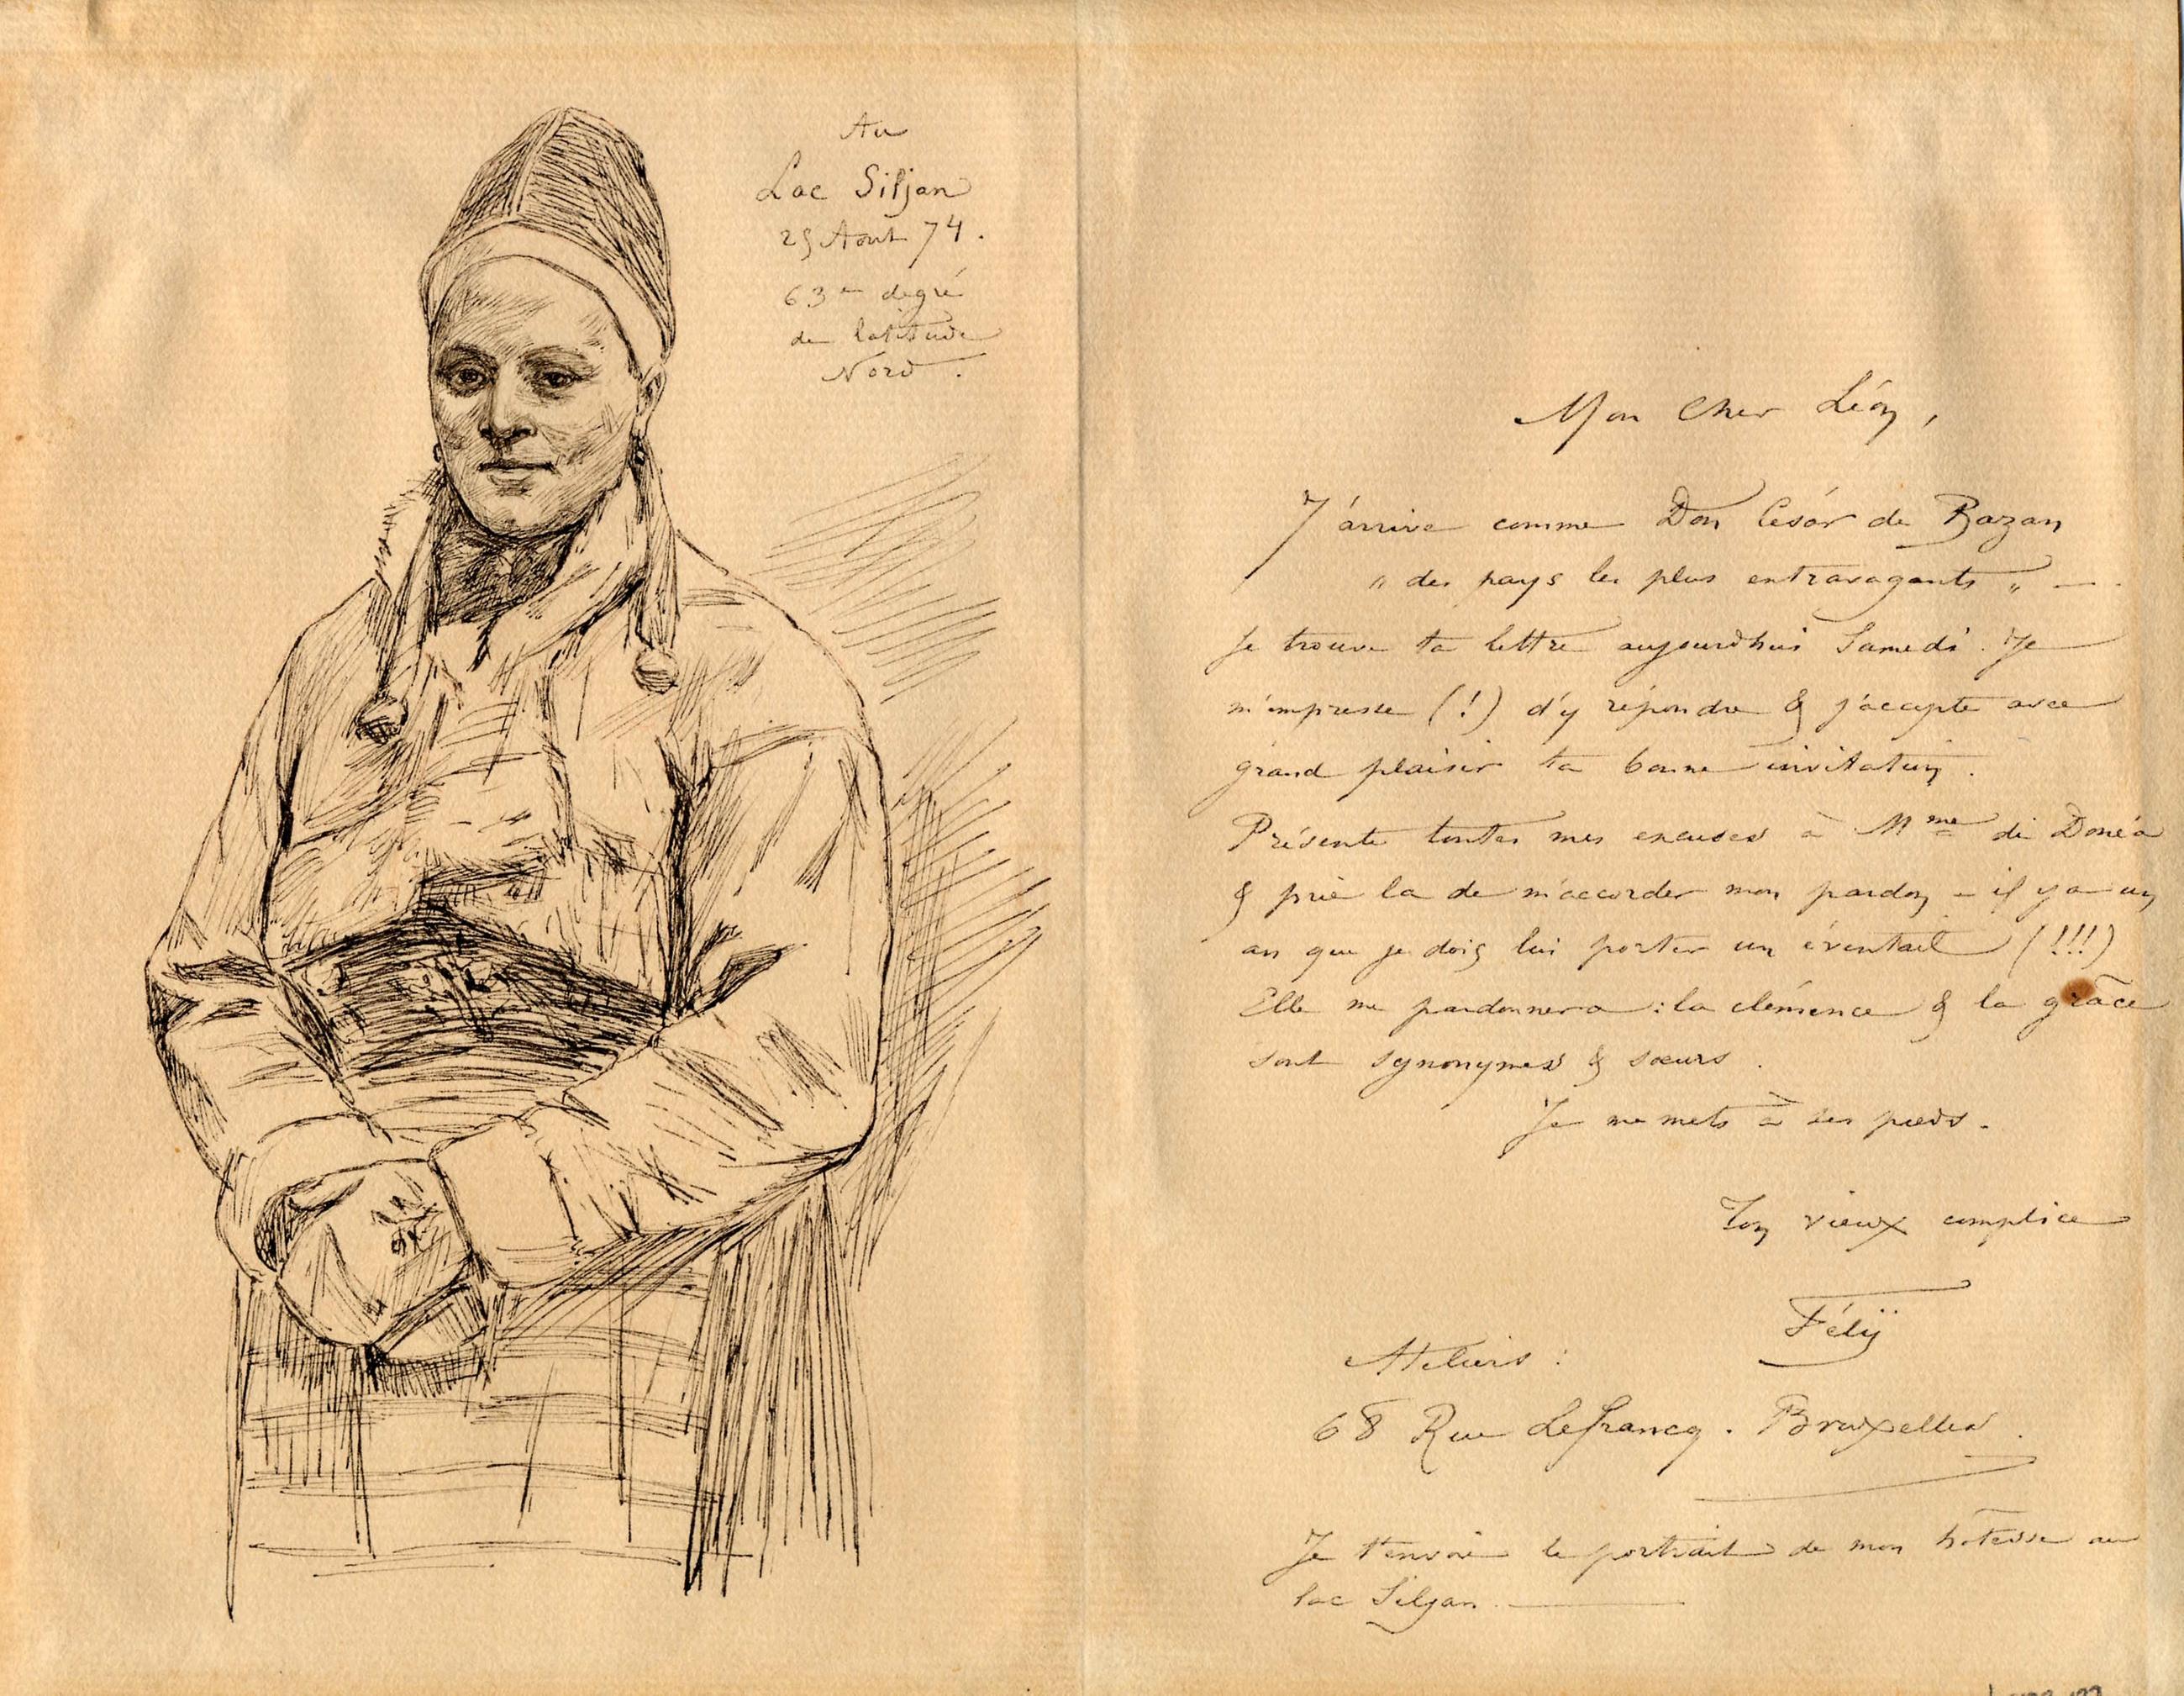 Au
Lac Siljan
25 Aout 74.
63me degré
de latitude
Nord.
Mon Cher Léon,
J'arrive comme Don César de Bazan
" des pays les plus extravagants " —
Je trouve ta lettre aujourd'hui Samedi. Je
m'empresse (!) d'y répondre & j'accepte avec
grand plaisir ta bonne invitation.
Présente toutes mes excuses à Mme di Donéa
& prie la de m'accorder mon pardon – il y a un
an que je dois lui porter un éventail (!!!)
Elle me pardonnera : la clémence & la grâce
sont synonymes & sœurs.
Je me mets à ses pieds.
Ton vieux complice
Fély
Ateliers :
68 Rue Lefrancq. Bruxelles.
Je t'envoie le portrait de mon hôtesse au
lac Siljan. —